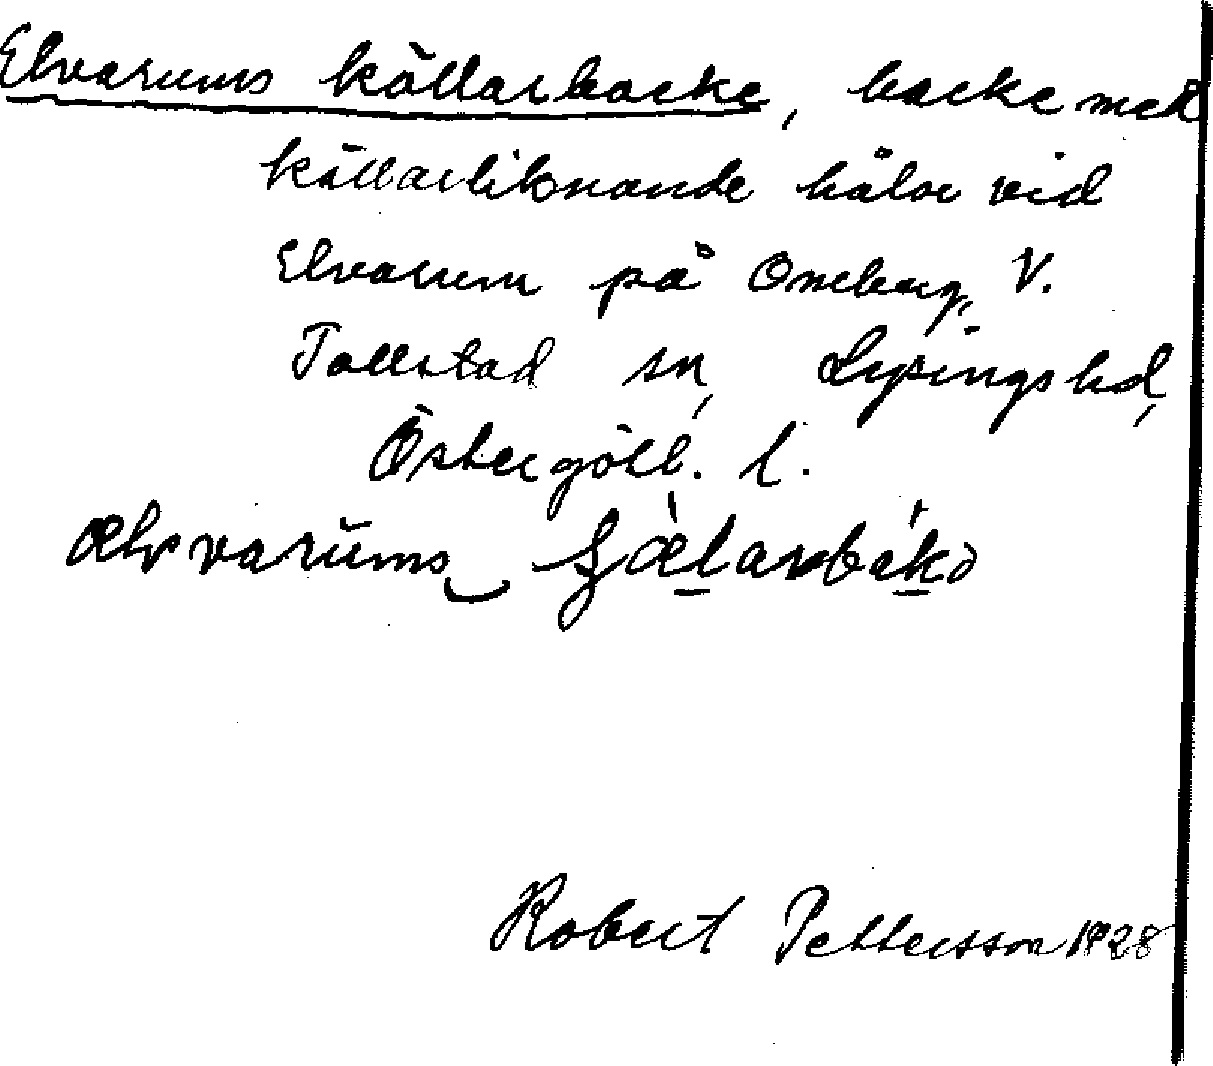 Elvarums källarbacke, backe med
källarliknande hålor vid
Elvarum på Omberg, V.
Tollstad sn, Lysings hd,
Östergötl. l.
Robert Pettersson 1928